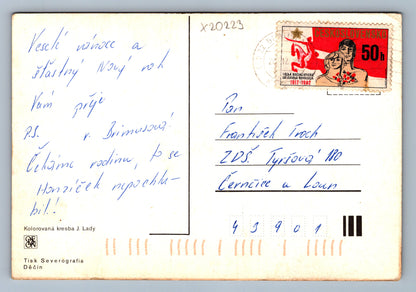 X20223
Veselé vánoce a
šťastný Nový rok
Vám přeje
P.S. r. Brimusová
Čekáme rodinu, to se
Honzíček nepochlu-
bil!
Kolorovaná kresba J. Lady
Tisk Severografia
Děčín
50h
1917-1982
Pan
František Troch
ZDŠ, Tyršová 110
Černčice u Loun
43901